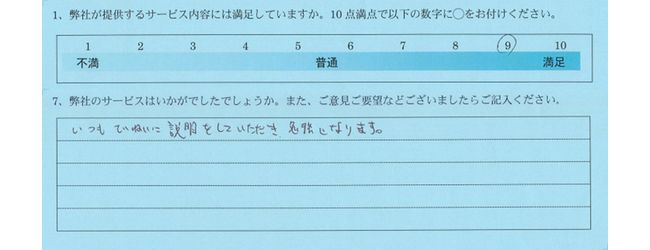 1、弊社が提供するサービス内容には満足していますか。10点満点で以下の数字に○をお付けください。
1 2 3 4 5 6 7 8 9 10
不満 普通 満足
7、弊社のサービスはいかがでしたでしょうか。また、ご意見ご要望などございましたらご記入ください。
いつもていねいに説明をしていただき勉強になります。